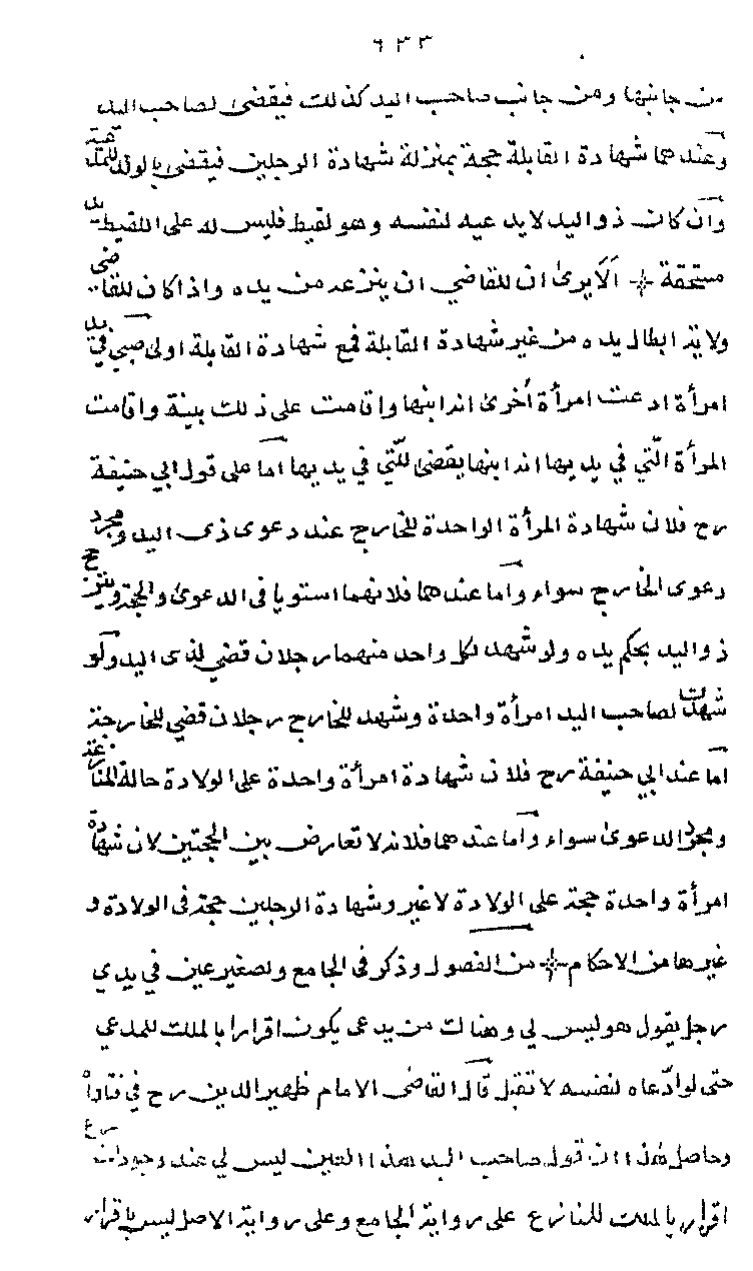 ٦٣٣
من جانبها ومن جانب صاحب اليد كذلك فيقضى لصاحب اليد
وعندهما شهادة القابلة حجة بمنزلة شهادة الرجلين فيقضى بالولد للمدعية
وان كان ذو اليد لا يدعيه لنفسه وهو لقيط فليس له على اللقيط يد
مستحقة الا يرى ان للقاضي ان ينزعه من يده واذا كان للقاضى
ولاية ابطال يده من غير شهادة القابلة فمع شهادة القابلة اولى صبي في يد
امرأة ادعت امرأة أخرى انه ابنها واقامت على ذلك بينة واقامت
المرأة الّتي في يديها انه ابنها يقضى للّتي في يديها امّا على قول ابي حنيفة
رح فلان شهادة المرأة الواحدة للخارج عند دعوى ذى اليد ومجرد
دعوى الخارج سواء وأما عندهما فلانهما استويا فى الدعوى والحجة ويترجح
ذو اليد بحكم يده ولو شهد لكل واحد منهما رجلان قضي لذى اليد ولو
شهدت لصاحب اليد امرأة واحدة وشهد للخارج رجلان قضي للخارجة
اما عند ابي حنيفة رح فلان شهادة امرأة واحدة على الولادة حالة المنازعة
ومجرد الدعوى سواء وأما عندهما فلانه لا تعارض بين الحجتين لان شهادة
امرأة واحدة حجة على الولادة لا غير وشهادة الرجلين حجة فى الولادة و
غيرها من الاحكام من الفصول وذكر فى الجامع والصغير عين في يدي
رجل يقول هو ليس لي وهناك من يدعى يكون اقرارا بالملك للمدعي
حتى لو ادّعاه لنفسه لا تقبل قال القاضى الامام ظهير الدين رح في فتاواه
وحاصل هذا ان قول صاحب اليد هذا العين ليس لي عند وجود المنازع
اقرار بالملك للمنازع على رواية الجامع وعلى رواية الاصل ليس باقرار